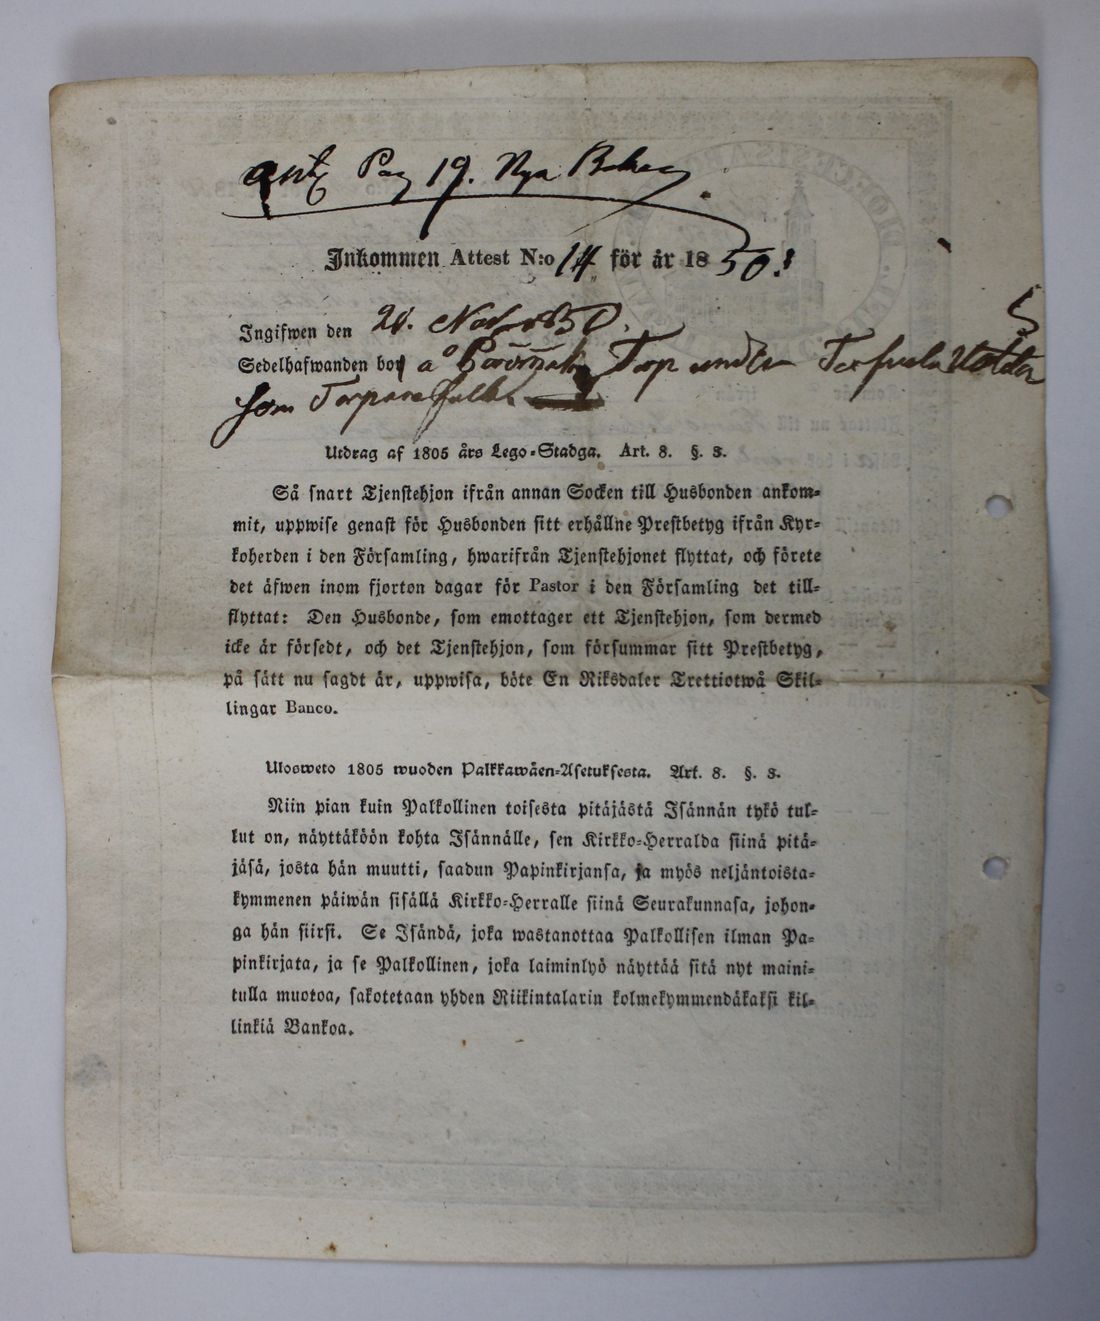 Pag 19. Nya
Inkommen Attest N:o 14 för år 1850.
Ingifwen den 28. Nov 1850.
Sedelhafwanden bor å Torp under
som Torpare
Utdrag af 1805 års Lego-Stadga. Art. 8. §. 3.
Så snart Tjenstehjon ifrån annan Socken till Husbonden ankom-
mit, uppwise genast för Husbonden sitt erhållne Prestbetyg ifrån Kyr-
koherden i den Församling, hwarifrån Tjenstehjonet flyttat, och förete
det äfwen inom fjorton dagar för Pastor i den Församling det till-
flyttat: Den Husbonde, som emottager ett Tjenstehjon, som dermed
icke är försedt, och det Tjenstehjon, som försummar sitt Prestbetyg,
på sätt nu sagdt är, uppwisa, böte En Riksdaler Trettiotwå Skil-
lingar Banco.
Ulosweto 1805 wuoden Palkkawäen-Asetuksesta. Art. 8. §. 3.
Niin pian kuin Palkollinen toisesta pitäjästä Isännän tykö tul-
lut on, näyttäköön kohta Isännälle, sen Kirkko-Herralda siinä pitä-
jäsä, josta hän muutti, saadun Papinkirjansa, ja myös neljäntoista-
kymmenen päiwän sisällä Kirkko-Herralle siinä Seurakunnasa, johon-
ga hän siirsi. Se Isändä, joka wastanottaa Palkollisen ilman Pa-
pinkirjata, ja se Palkollinen, joka laiminlyö näyttää sitä nyt maini-
tulla muotoa, sakotetaan yhden Riikintalarin kolmekymmendäkaksi kil-
linkiä Bankoa.